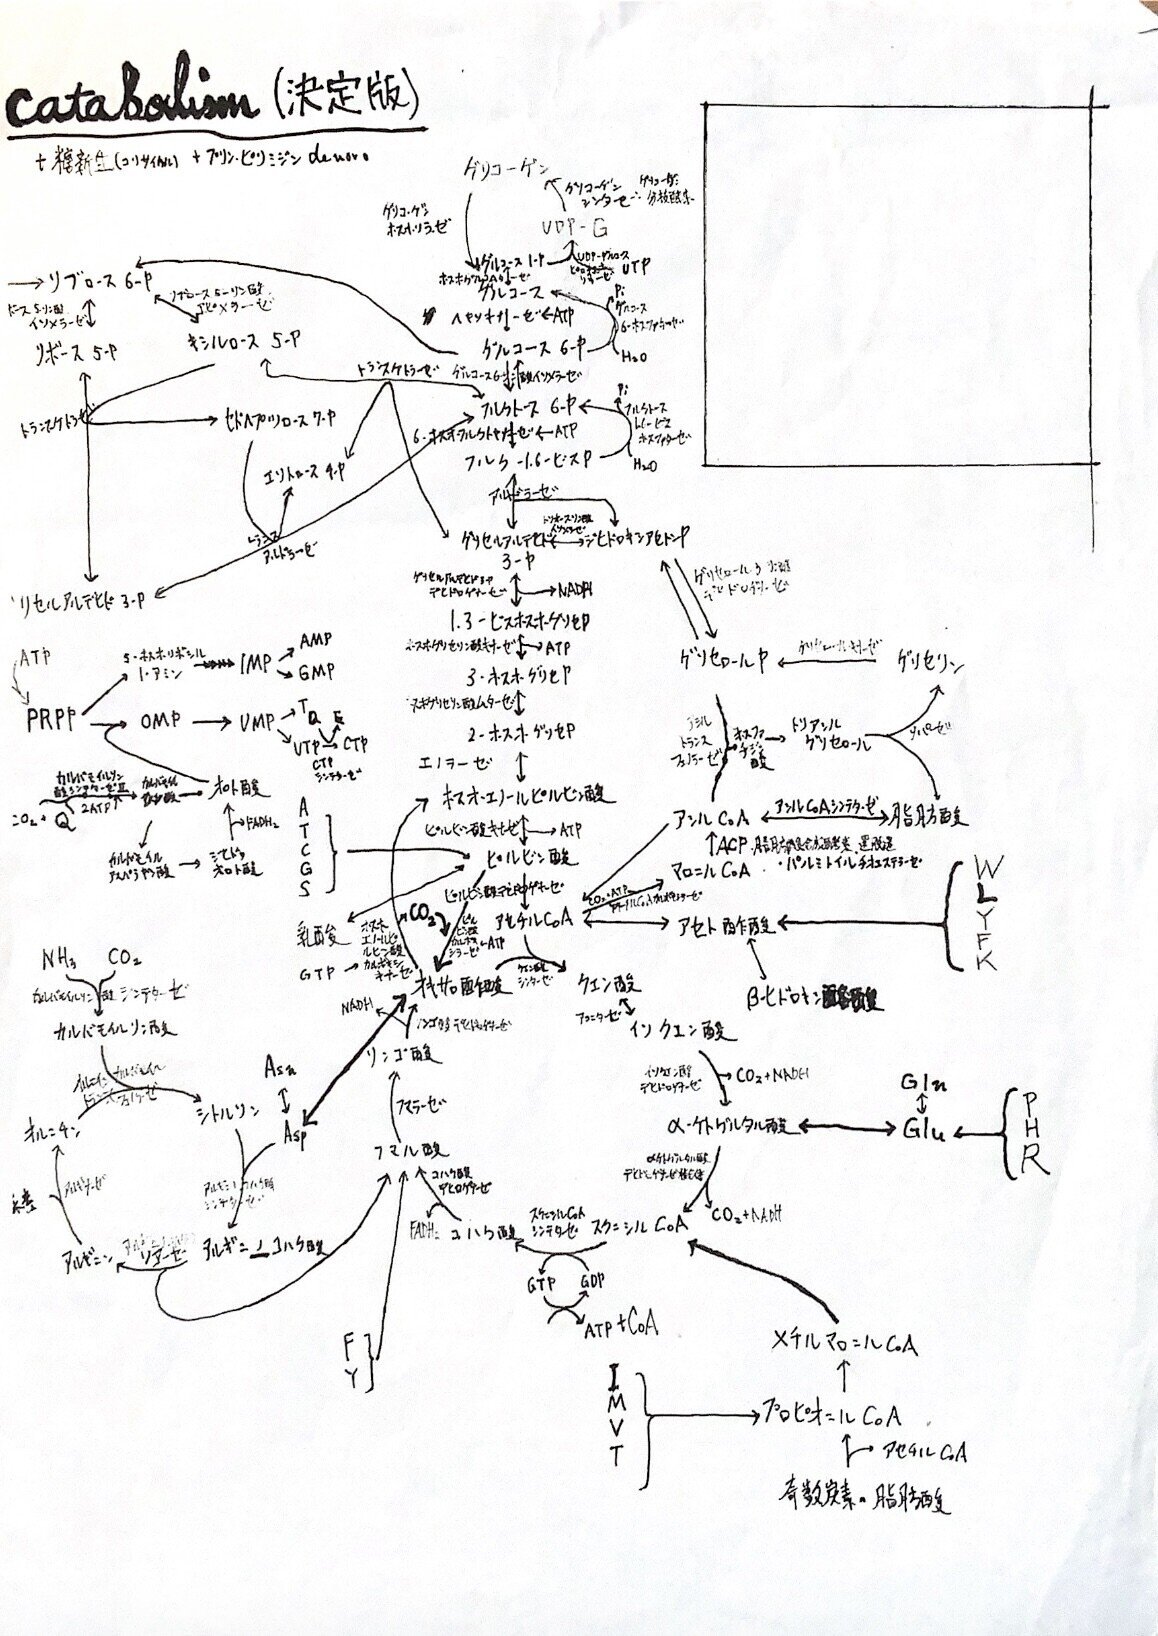 catabolism (決定版)
+ 糖新生(コリサイクル) + プリン・ピリミジン denovo
グリコーゲン
グリコーゲン
シンターゼ
グリコーゲン
ホスホリラーゼ
UDP-G
グルコース 1-P
UDP-グルコース
UTP
グルコース
Pi
グルコース
6-ホスファターゼ
ヘキソキナーゼ ATP
H₂O
グルコース 6-P
グルコース6-リン酸イソメラーゼ
リブロース 6-P
リブロース 5-リン酸
エピメラーゼ
イソメラーゼ
リボース 5-P
キシルロース 5-P
トランスケトラーゼ
トランスケトラーゼ
セドヘプツロース 7-P
エリトロース 4-P
トランス
アルドラーゼ
リセルアルデヒド 3-P
フルクトース 6-P
Pi
フルクトース
1,6-ビス
ホスファターゼ
6-ホスホフルクトキナーゼ ATP
フルク-1.6-ビスP
H₂O
アルドラーゼ
トリオースリン酸
イソメラーゼ
グリセルアルデヒド
3-P
ジヒドロキシアセトンP
グリセルアルデヒド3-P
デヒドロゲナーゼ
NADH
グリセロール3-リン酸
デヒドロゲナーゼ
1.3-ビスホスホグリセP
ホスホグリセリン酸キナーゼ ATP
3-ホスホグリセP
ホスホグリセリン酸ムターゼ
2-ホスホグリセP
エノラーゼ
ホスホエノールピルビン酸
ピルビン酸キナーゼ ATP
ピルビン酸
ピルビン酸デヒドロゲナーゼ
アセチルCoA
グリセロールP
グリセロールキナーゼ
グリセリン
アシル
トランス
フェラーゼ
ホスファ
チジン
酸
トリアシル
グリセロール
リパーゼ
アシルCoA
アシルCoAシンテターゼ
脂肪酸
・パルミトイルチオエステラーゼ
マロニルCoA
CO₂+ATP
アセチルCoAカルボキシラーゼ
アセト酢酸
W
L
Y
F
K
β-ヒドロキシ酪酸
ATP
PRPP
5-ホスホリボシル
1-アミン
IMP
AMP
GMP
OMP
UMP
T
UTP
CTP
CTP
シンテターゼ
カルバモイルリン
酸シンテターゼII
2ATP
CO₂+Q
カルバモイル
リン酸
オロト酸
FADH₂
カルバモイル
アスパラギン酸
ジヒドロ
オロト酸
A
T
C
G
S
乳酸
CO₂
ホスホ
エノールピ
ルビン酸
カルボキシ
キナーゼ
GTP
ピル
ビン酸
カルボキ
シラーゼ
ATP
オキサロ酢酸
クエン酸
シンターゼ
クエン酸
アコニターゼ
イソクエン酸
イソクエン酸
デヒドロゲナーゼ
CO₂+NADH
α-ケトグルタル酸
Gln
Glu
P
H
R
α-ケトグルタル酸
デヒドロゲナーゼ複合体
CO₂+NADH
スクニシルCoA
スクニシルCoA
シンテターゼ
GTP
GDP
ATP+CoA
コハク酸
コハク酸
デヒロゲナーゼ
FADH₂
フマル酸
フマラーゼ
リンゴ酸
リンゴ酸デヒドロゲナーゼ
NADH
NH₃
CO₂
カルバモイルリン酸シンテターゼ
カルバモイルリン酸
オルニチンカルバモイル
トランスフェラーゼ
シトルリン
オルニチン
Asn
Asp
アルギニノコハク酸
シンテターゼ
アルギニノコハク酸
アルギニノコハク酸
リアーゼ
アルギニン
アルギナーゼ
尿素
F
Y
I
M
V
T
メチルマロニルCoA
プロピオニルCoA
アセチルCoA
奇数炭素の脂肪酸